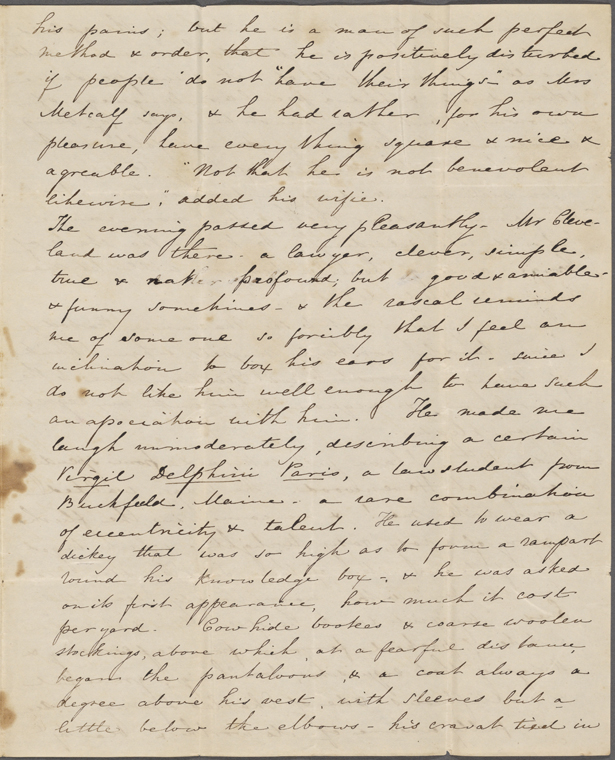 his pains; but he is a man of such perfect
method & order, that he is positively disturbed
if people "do not "have their things" as Mrs
Metcalf says, & he had rather, for his own
pleasure, have every thing square & nice &
agreable. "Not that he is not benevolent
likewise", added his wifie.
The evening passed very pleasantly - Mr Cleve-
land was there - a lawyer, clever, simple,
true & profound; but good & amiable -
& funny sometimes - & the rascal reminds
me of some one so forcibly that I feel an
inclination to box his ears for it - since I
do not like him well enough to have such
an association with him. He made me
laugh immoderately, describing a certain
Virgil Delphini Paris, a law student from
Buckfield, Maine - a rare combination
of eccentricity & talent. He used to wear a
dickey that was so high as to form a rampart
round his knowledge box -, & he was asked
on its first appearance, how much it cost
per yard. Cowhide bootees & coarse woolen
stockings, above which at a fearful distance
began the pantaloons, & a coat always a
degree above his vest, with sleeves but a
little below the elbows - his cravat tied in